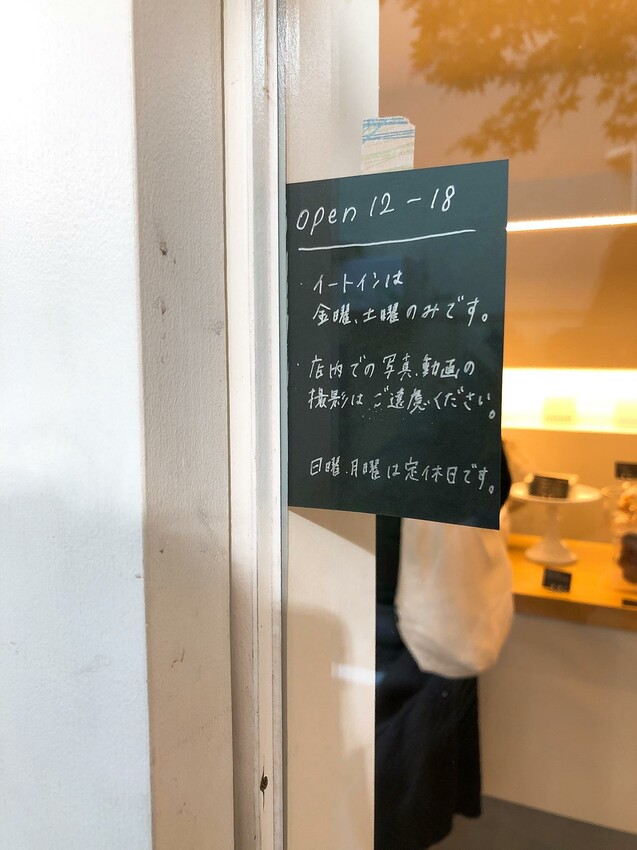 open 12 - 18
・イートインは
金曜、土曜のみです。
・店内での写真、動画の
撮影はご遠慮ください。
日曜、月曜は定休日です。